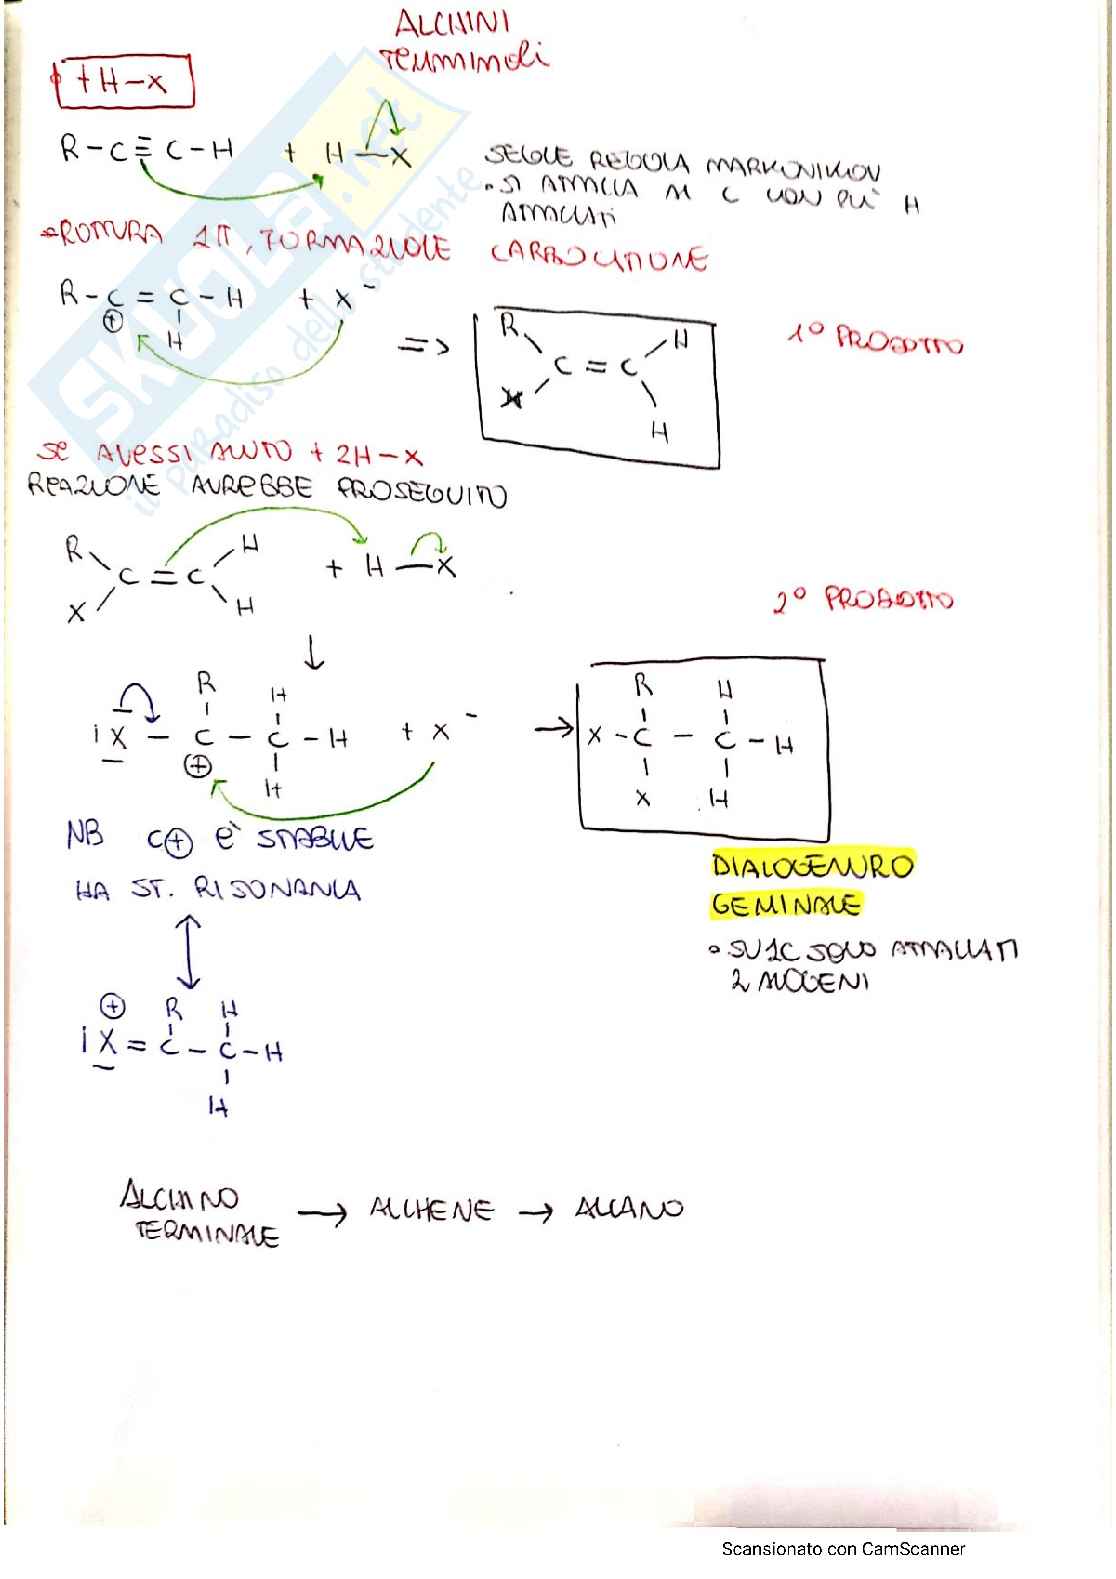 ALCHINI
Terminali
+ H-X
R-C≡C-H + H-X
SEGUE REGOLA MARKOVNIKOV
• SI ATTACCA AL C CON PIÙ H
ATTACCATI
ROTTURA 1π, FORMAZIONE CARBOCATIONE
R-C=C-H + X⁻
⊕ H
=>
R H
C=C
X H
1° PRODOTTO
Se AVESSI AVUTO + 2H-X
REAZIONE AVREBBE PROSEGUITO
R H
C=C + H-X
X H
2° PRODOTTO
↓
R H
X - C - C - H + X⁻
⊕ H
→
R H
X - C - C - H
X H
NB C⊕ È STABILE
HA ST. RISONANZA
DIALOGENURO
GEMINALE
• SU 1C SOLO ATTACCATI
2 ALOGENI
⊕ R H
X = C - C - H
H
ALCHINO
TERMINALE → ALCHENE → ALCANO
SKUOLA.net
il paradiso dello studente
Scansionato con CamScanner